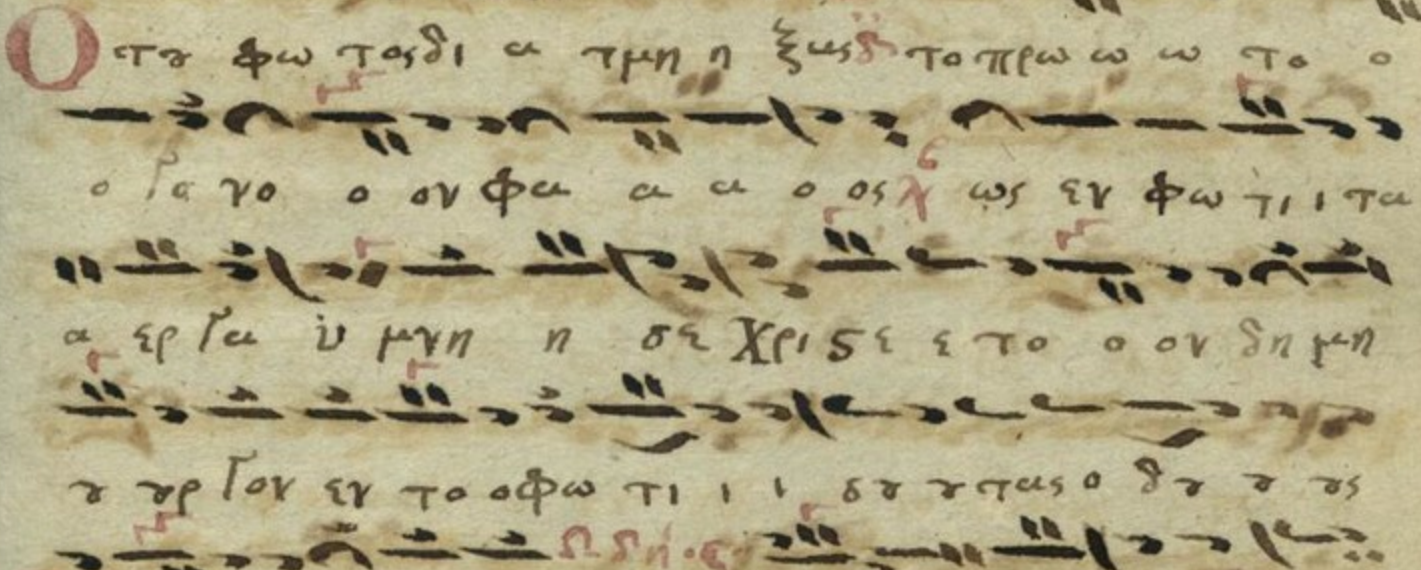 Ο του φω τοςδι α τμη η ξας το πρω ω ω το ο
ο γα νο ο ον φα α α ο ος ως εν φω τι ι τα
α ερ γα υ μνη η σε Χριϛε ε το ο ον δη μη
ου ουρ γον εν το ο φω τι ι ι σου ου τας ο δου ου ους
Ωδή · ε